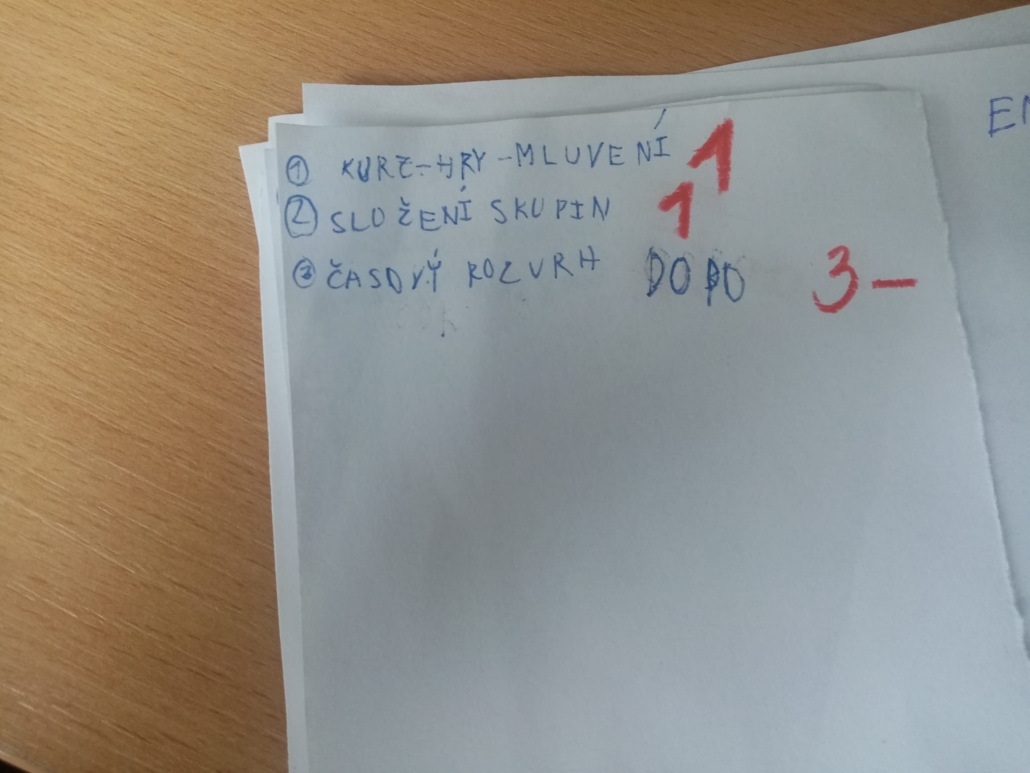 ① KURZ-HRY-MLUVENÍ 1
② SLOŽENÍ SKUPIN 1
③ ČASOVÝ ROZVRH DOPO 3-